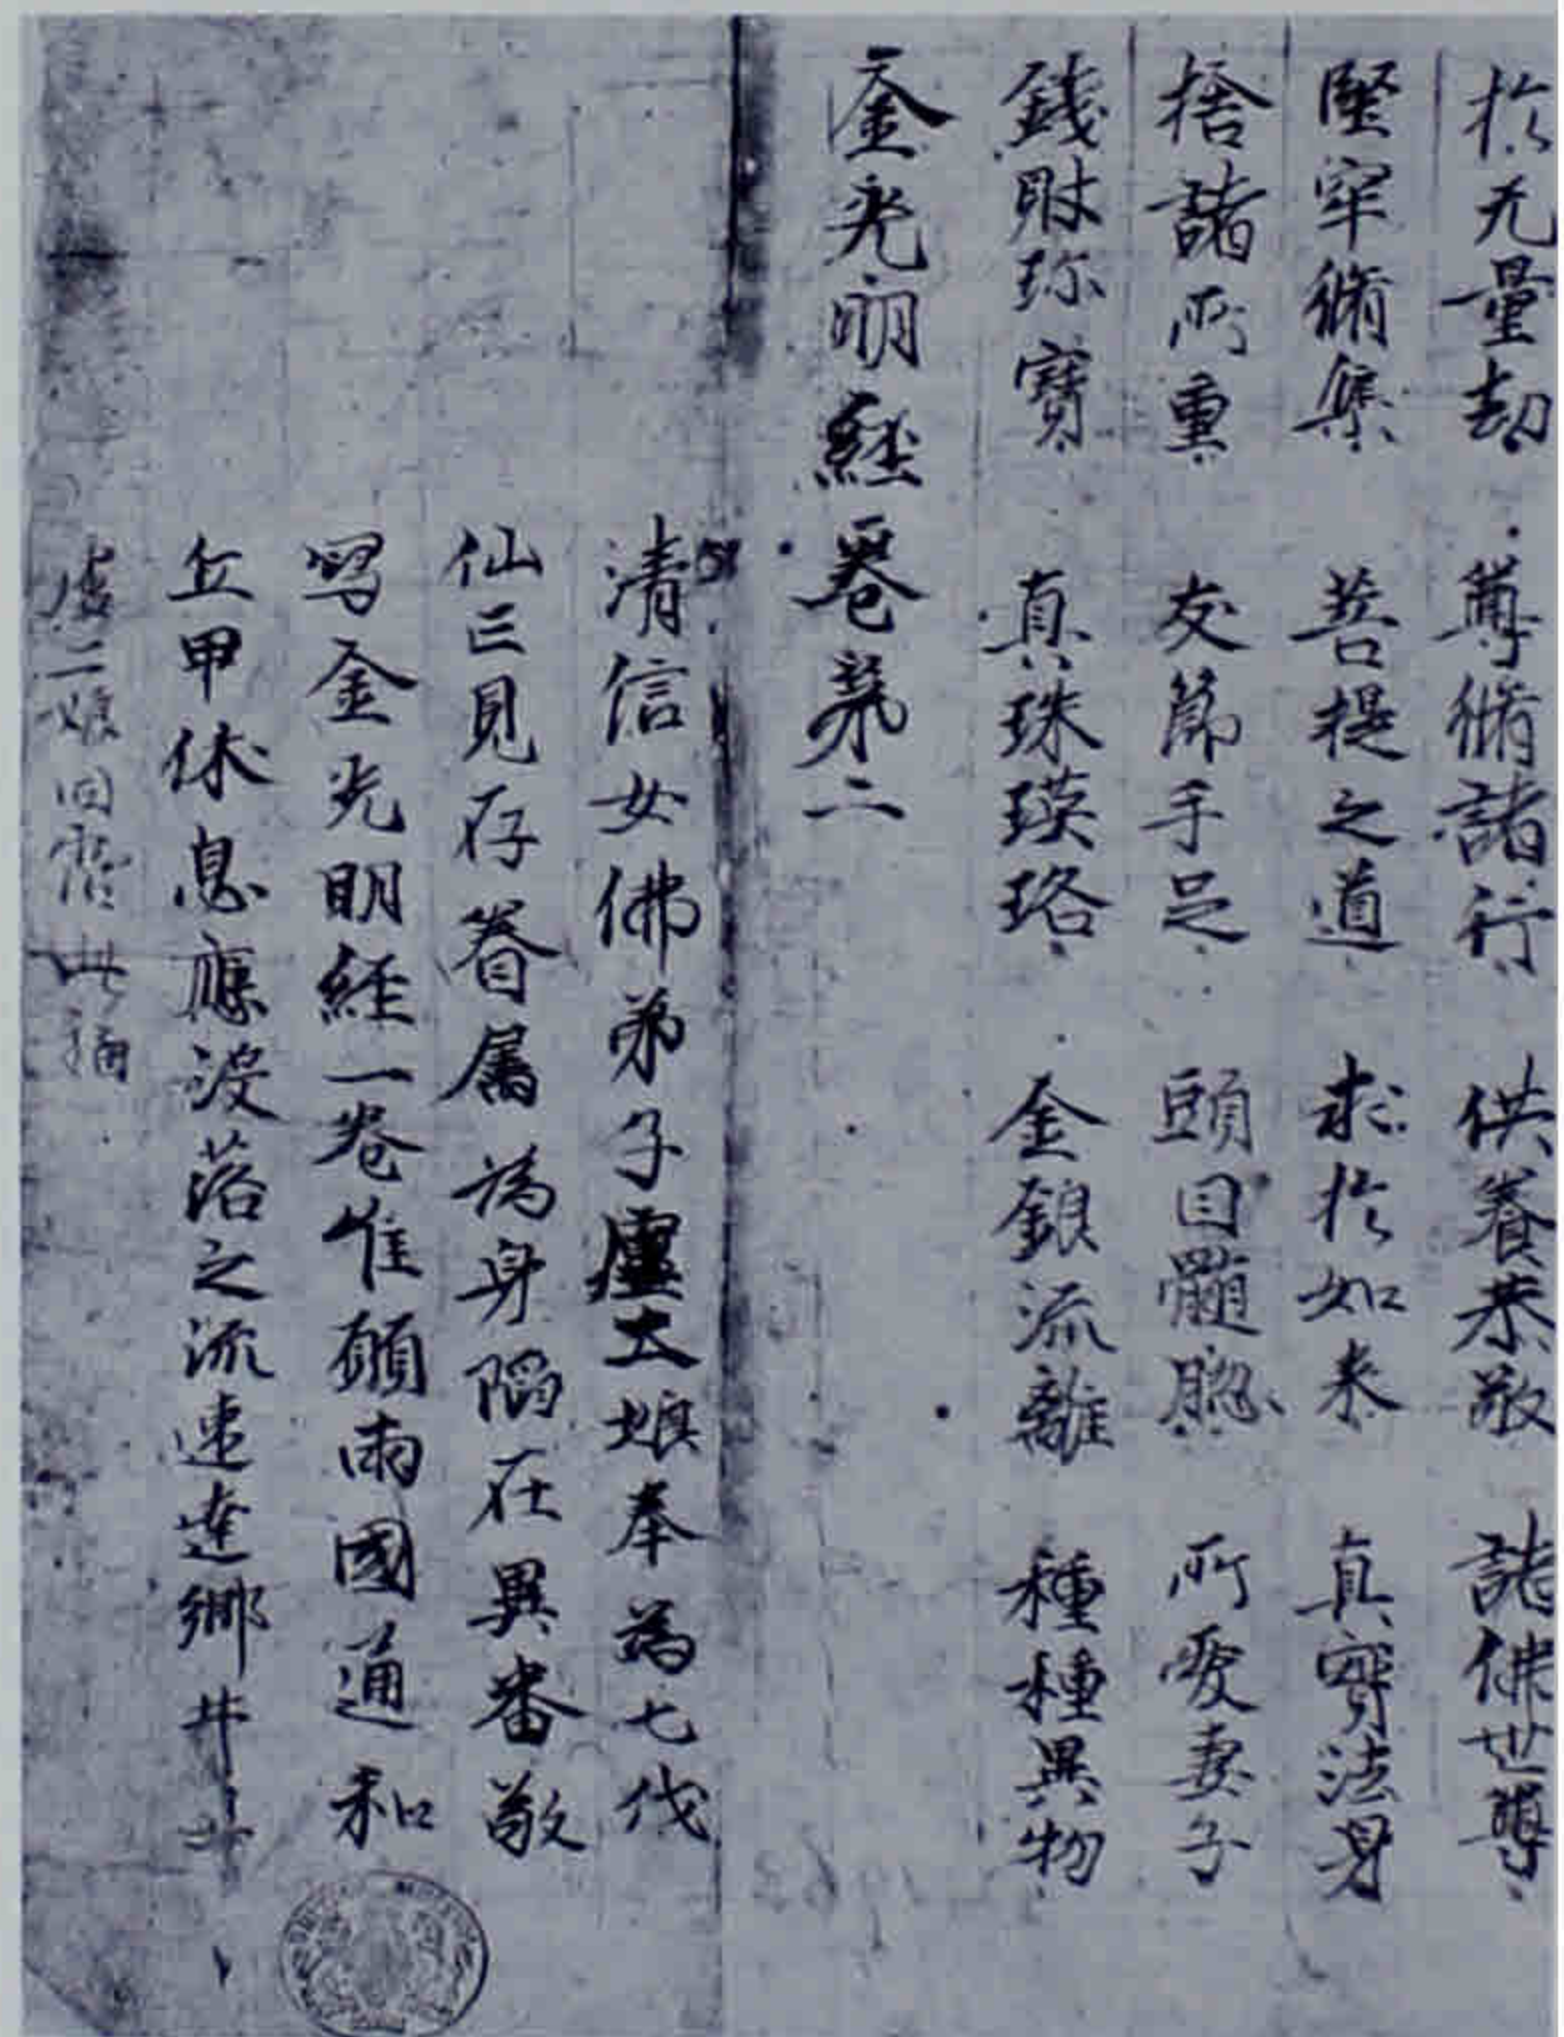 於无量劫 尊脩諸行 供養恭敬 諸佛世尊
堅牢脩集 菩提之道 求於如来 真實法身
捨諸所重 支節手足 頭目髓腦 所愛妻子
錢財珎寶 真珠瓔珞 金銀流離 種種異物
金光明經卷第二
清信女佛弟子盧大娘奉為七伐
仙亡見存眷属為身陷在異番敬
寫金光明経一卷惟願兩國通和
兵甲休息應没落之流速達鄉井
盧二娘同霑此福